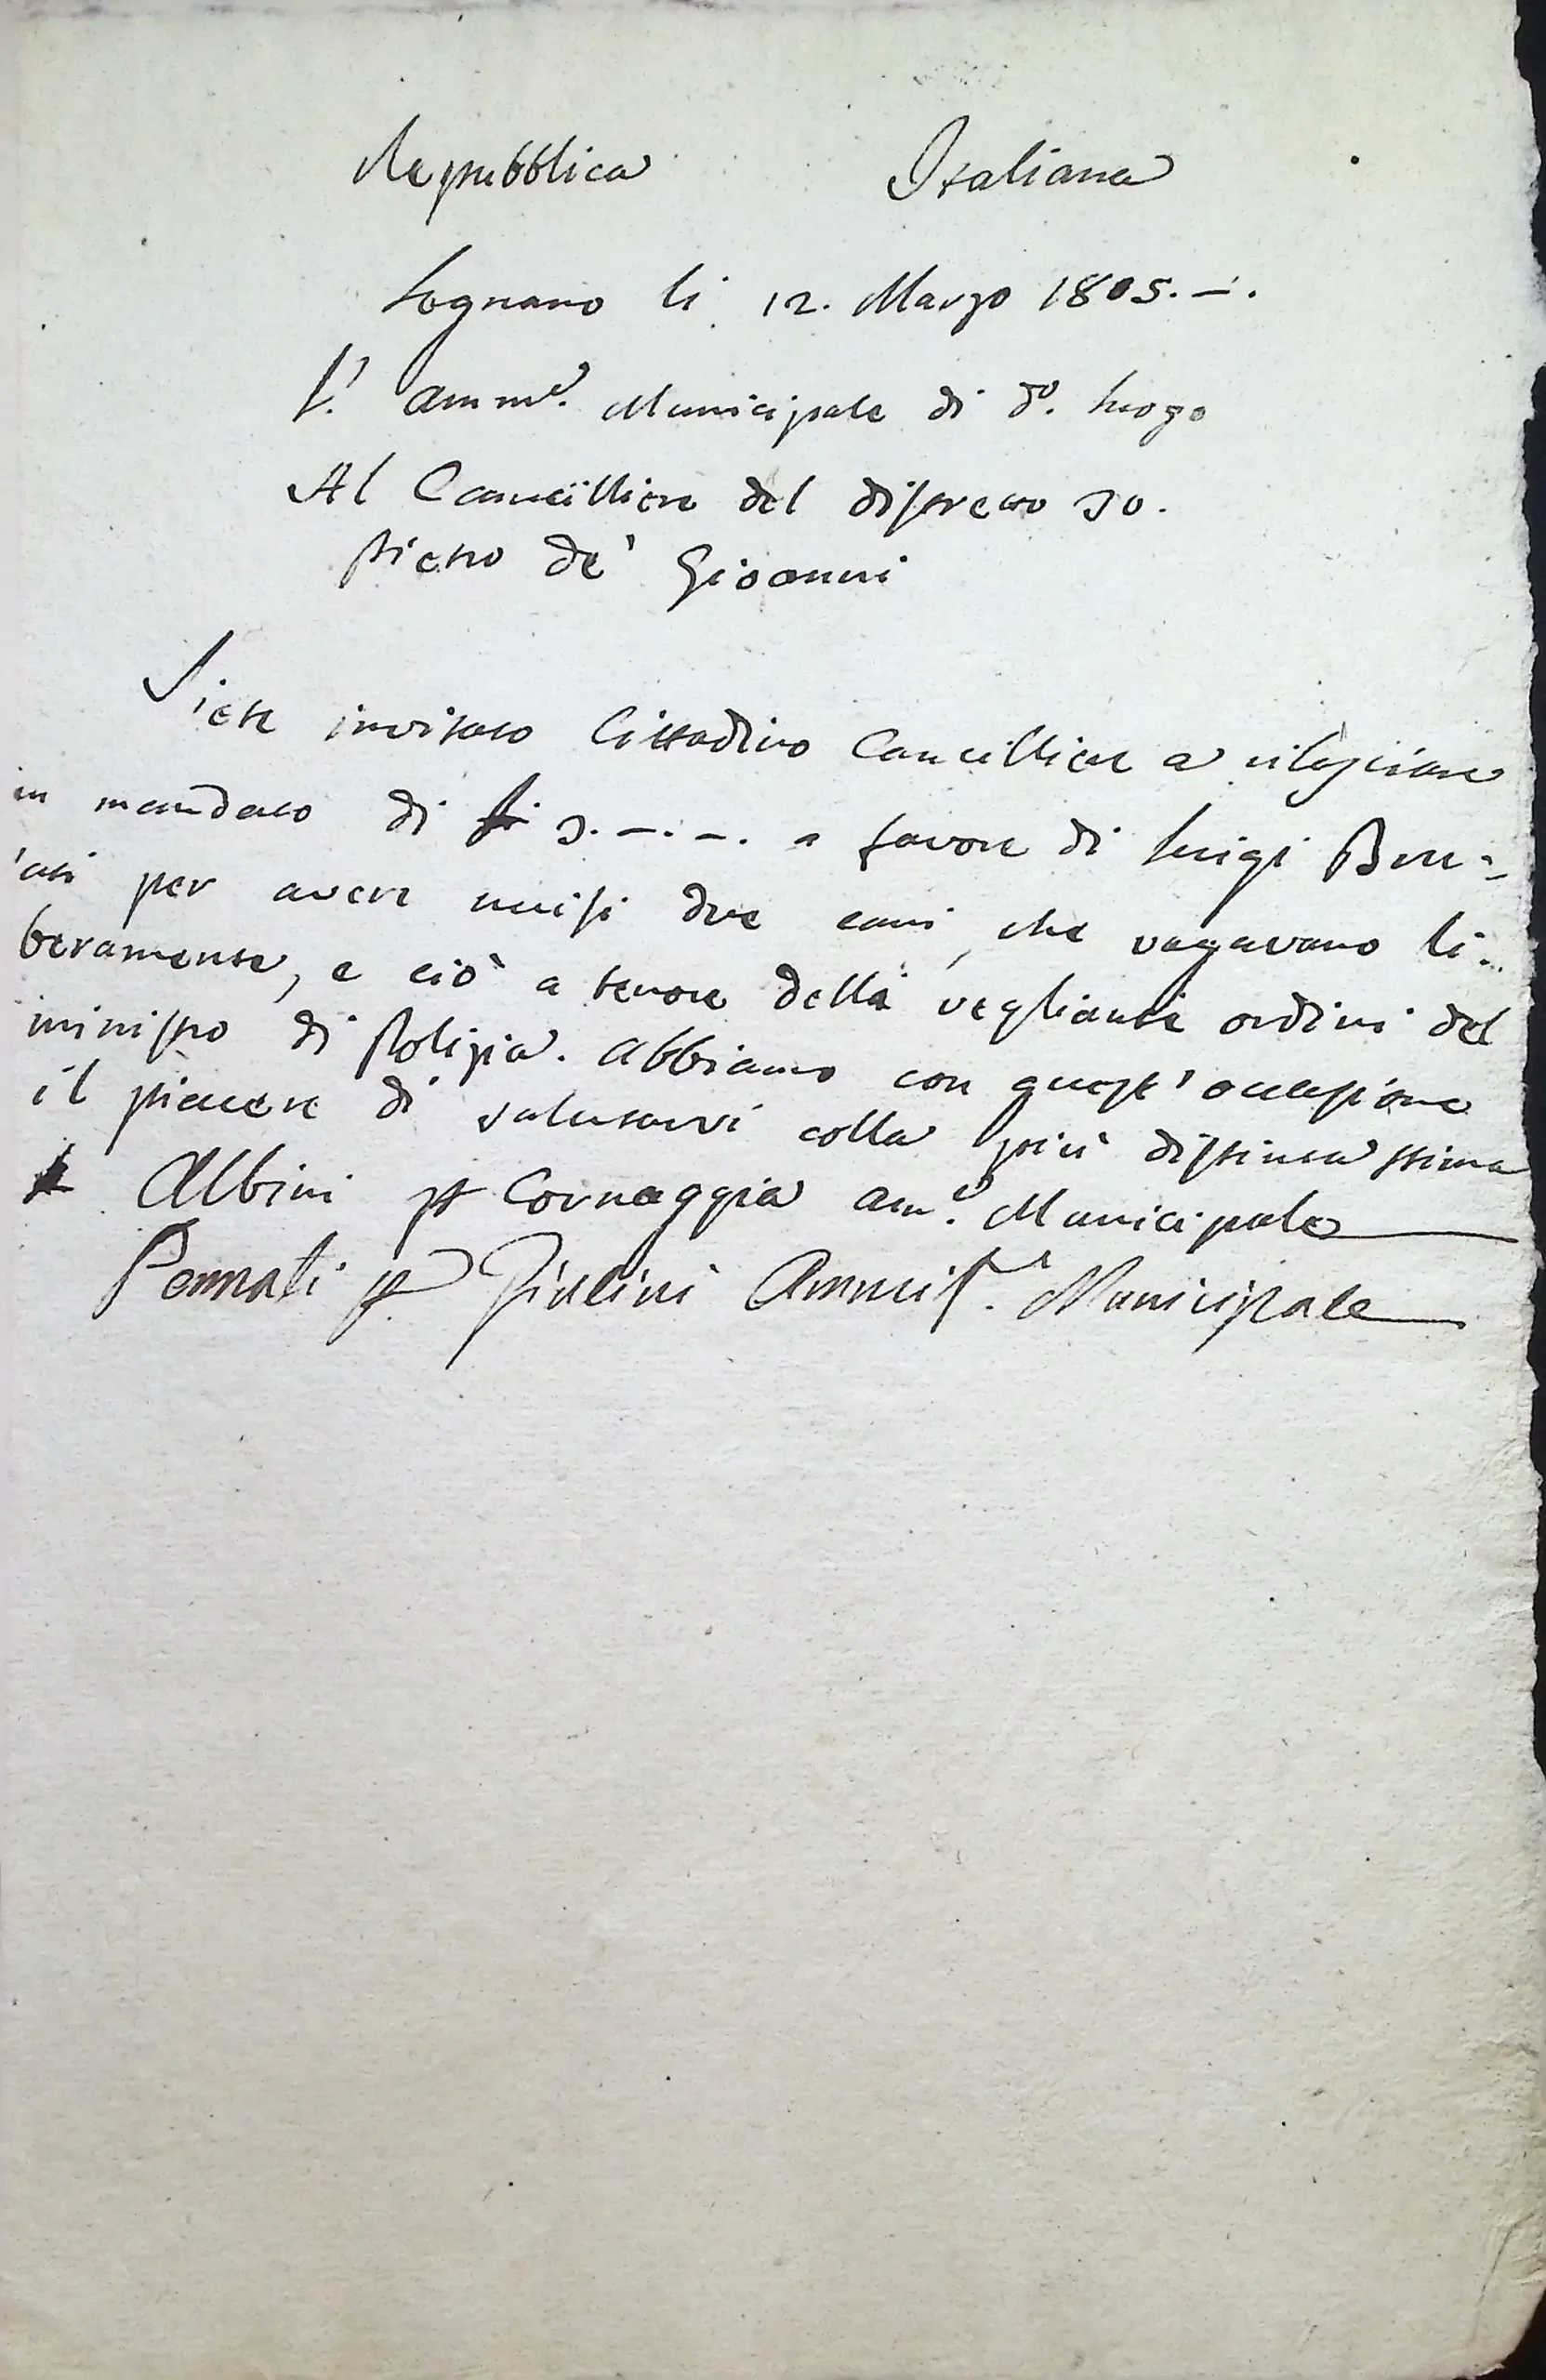 Repubblica Italiana
Lognano li 12. Marzo 1805. –.
L'. amm.e Municipale di d.o luogo
Al Cancilliere del distretto 30.
Pietro de' Gioanni
Siete invitato Cittadino Cancilliere a rilasciare
un mandato di 3. –. –. a favore di Luigi
per avere uccisi due cani, che vagavano li=
beramente, e ciò a tenore delli veglianti ordini del
ministro di Polizia. Abbiamo con quest'occasione
il piacere di salutarvi colla più distinta stima
Albini p Cornaggia am.e Municipale
Pennati p. Giulini Ammis.e Municipale